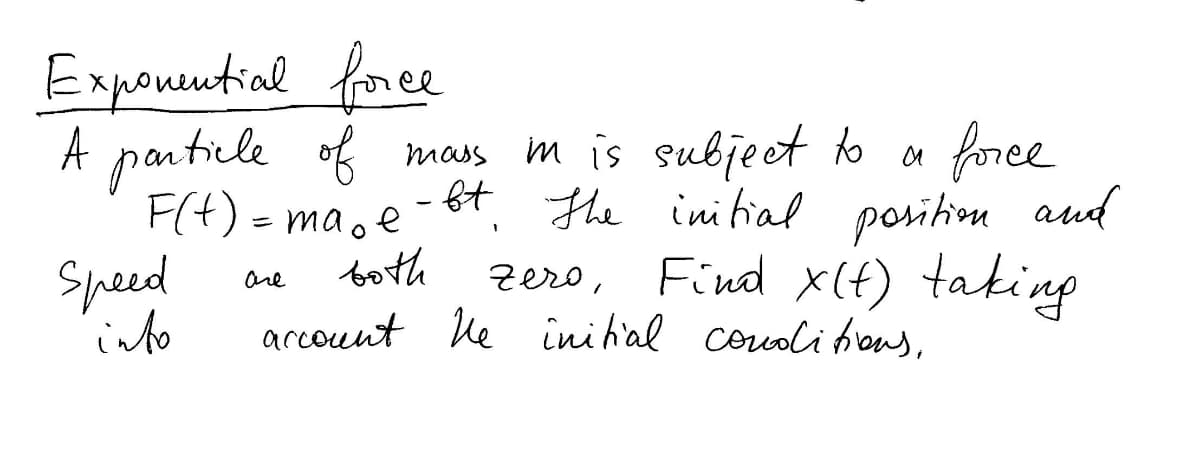 Exponential force
A particle of mass m is subject to a force
F(t) = ma₀e^{-bt}. The initial position and
Speed are both zero, Find x(t) taking
into account the initial conditions,